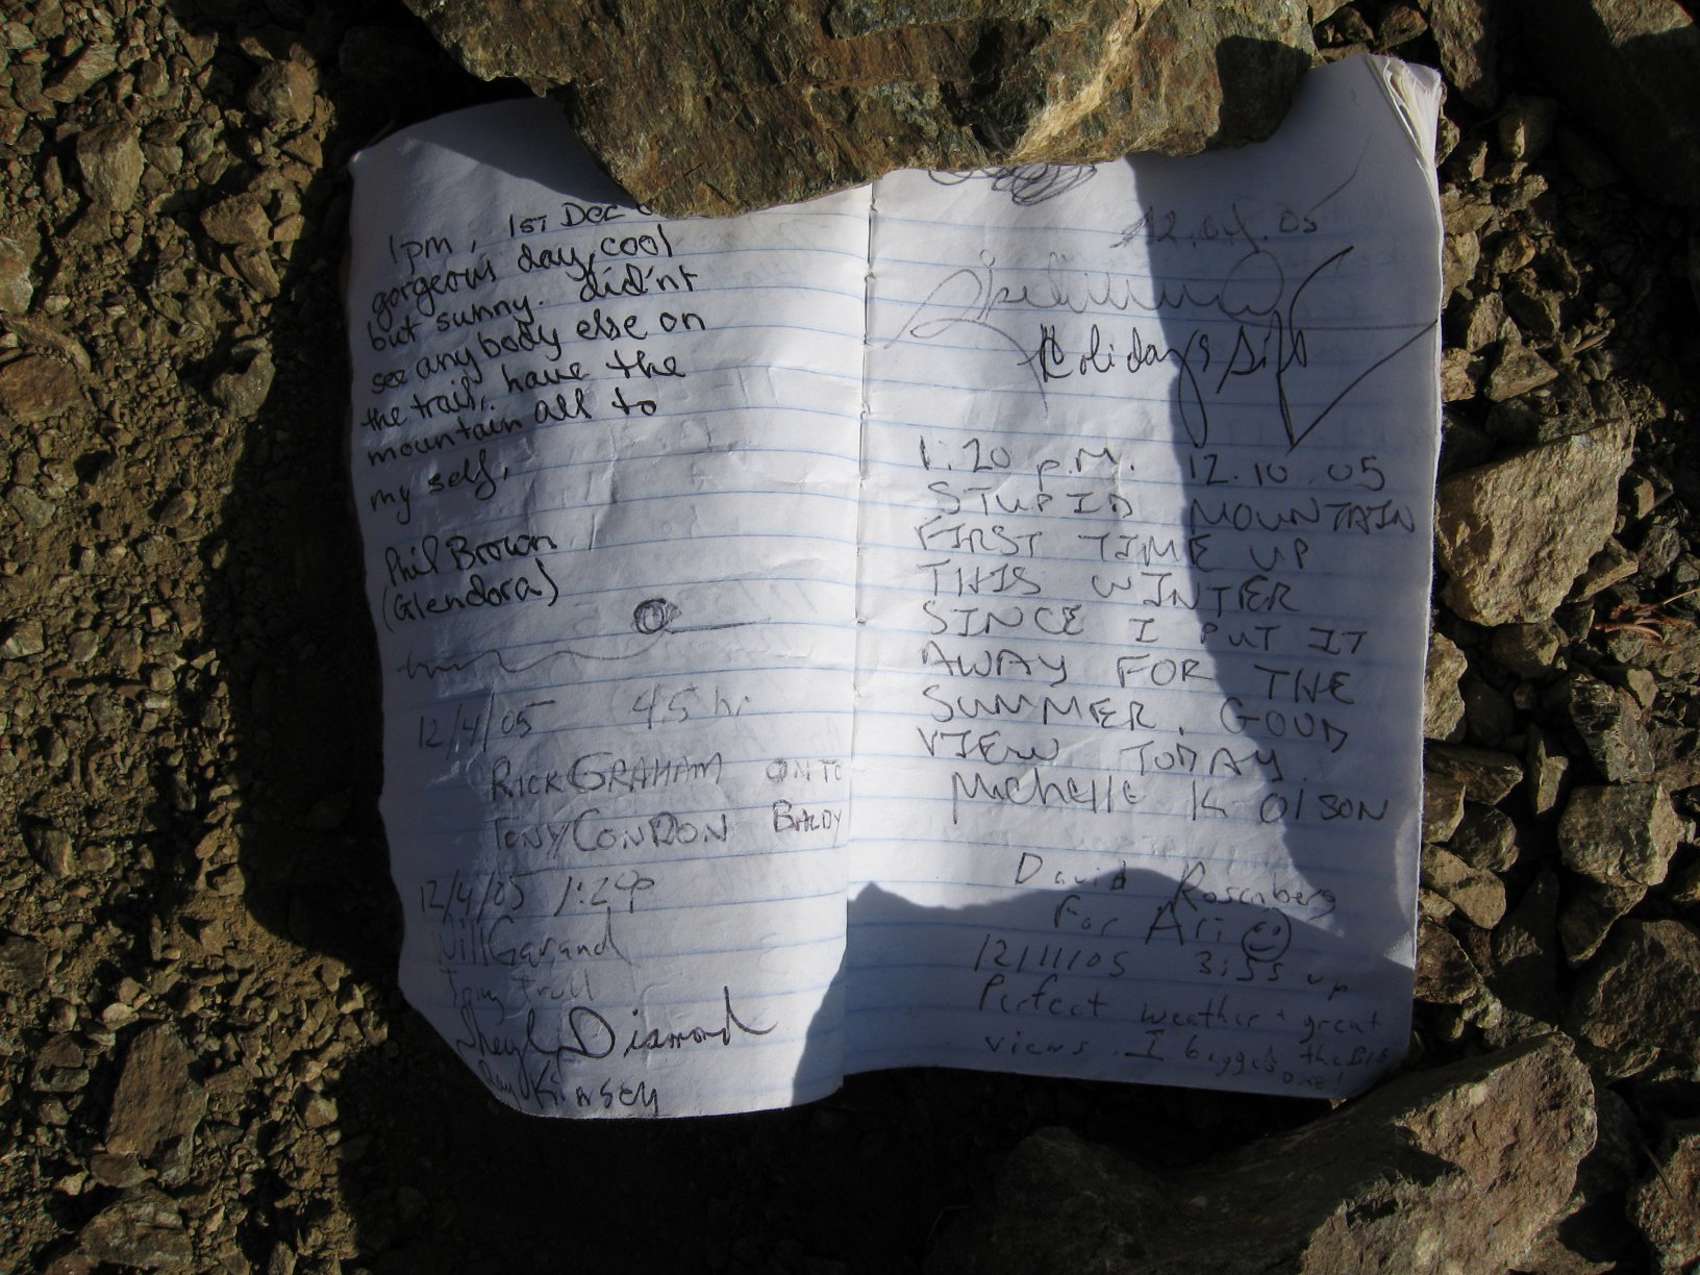 1pm, 1ST DEC
gorgeous day, cool
but sunny. did'nt
see anybody else on
the trail, have the
mountain all to
my self.
Phil Brown
(Glendora)
12/4/05 4.5 hr
RICK GRAHAM ONTO
TONY CONDON BALDY
12/4/05 1:24p
Will Garand
Tony
Sheryl Diamond
Kinsey
12.04.05
Holidays
1:20 p.M. 12.10.05
STUPID MOUNTAIN
FIRST TIME UP
THIS WINTER
SINCE I PUT IT
AWAY FOR THE
SUMMER. GOUD
VIEW TODAY.
MichellE K OlSON
David Rosenberg
For Ari
12/11/05 3:55 up
Perfect weather + great
views. I bagged the BIG
one!